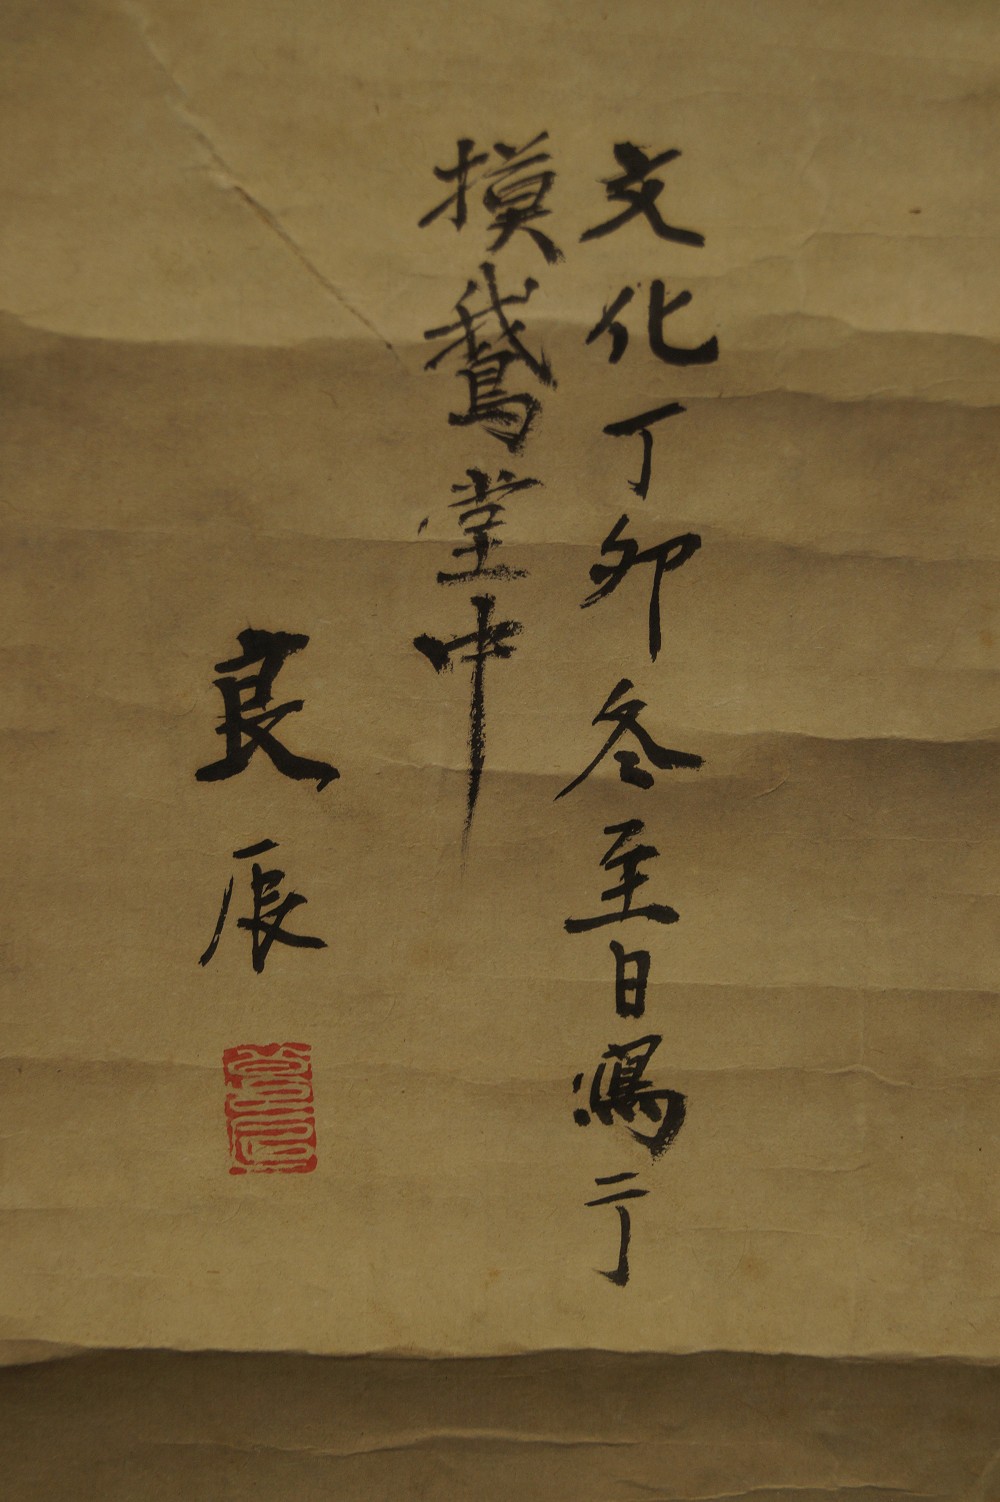 文化丁卯冬至日寫亍
摸鵞堂中
良辰